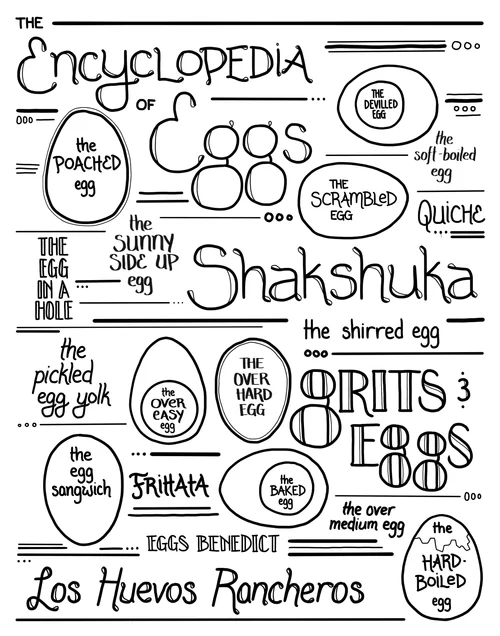 THE
ENCYCLOPEDIA
OF
Eggs
THE
DEVILLED
EGG
the
POACHED
egg
the
soft-boiled
egg
THE
SCRAMBLED
EGG
QUICHE
the
SUNNY
SIDE UP
egg
THE
EGG
IN A
HOLE
Shakshuka
the shirred egg
the
pickled
egg yolk
the
OVER
EASY
egg
THE
OVER
HARD
EGG
gRITS &
EggS
the
egg
sandwich
FRITTATA
the
BAKED
egg
the over
medium egg
EGGS BENEDICT
the
HARD-
BOILED
egg
Los Huevos Rancheros